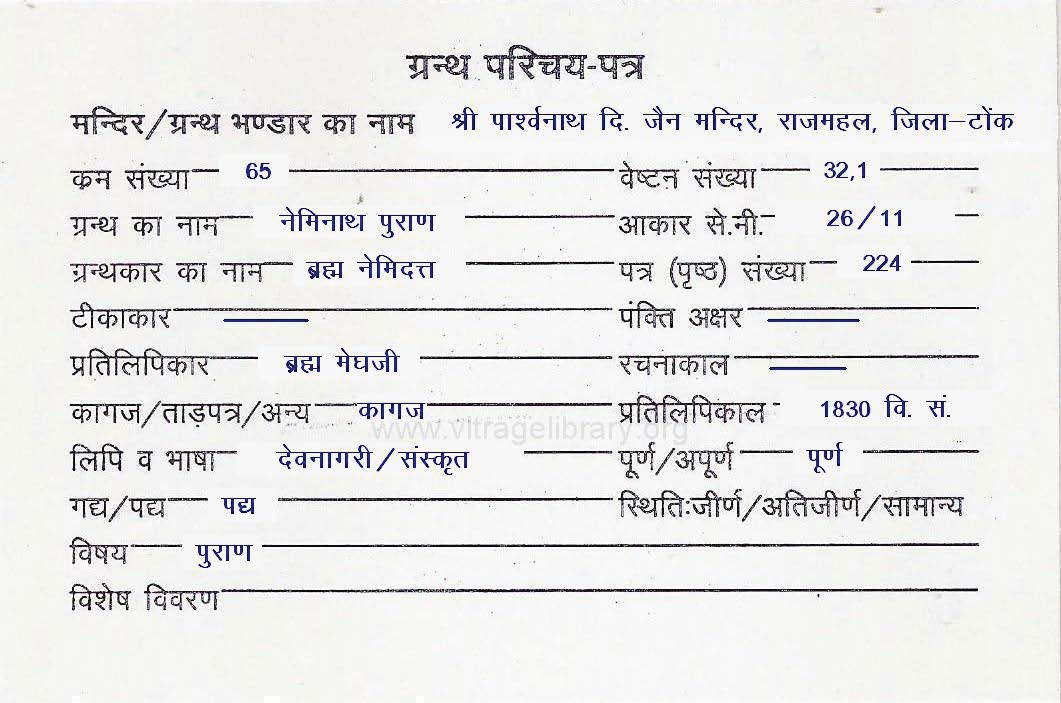 ग्रन्थ परिचय-पत्र
मन्दिर/ग्रन्थ भण्डार का नाम श्री पार्श्वनाथ दि. जैन मन्दिर, राजमहल, जिला-टोंक
कम संख्या 65 वेष्टन संख्या 32,1
ग्रन्थ का नाम नेमिनाथ पुराण आकार से.मी. 26/11
ग्रन्थकार का नाम ब्रह्म नेमिदत्त पत्र (पृष्ठ) संख्या 224
टीकाकार पंक्ति अक्षर
प्रतिलिपिकार ब्रह्म मेघजी रचनाकाल
कागज/ताड़पत्र/अन्य कागज प्रतिलिपिकाल 1830 वि. सं.
www.vitragelibrary.org
लिपि व भाषा देवनागरी/संस्कृत पूर्ण/अपूर्ण पूर्ण
गद्य/पद्य पद्य स्थितिःजीर्ण/अतिजीर्ण/सामान्य
विषय पुराण
विशेष विवरण